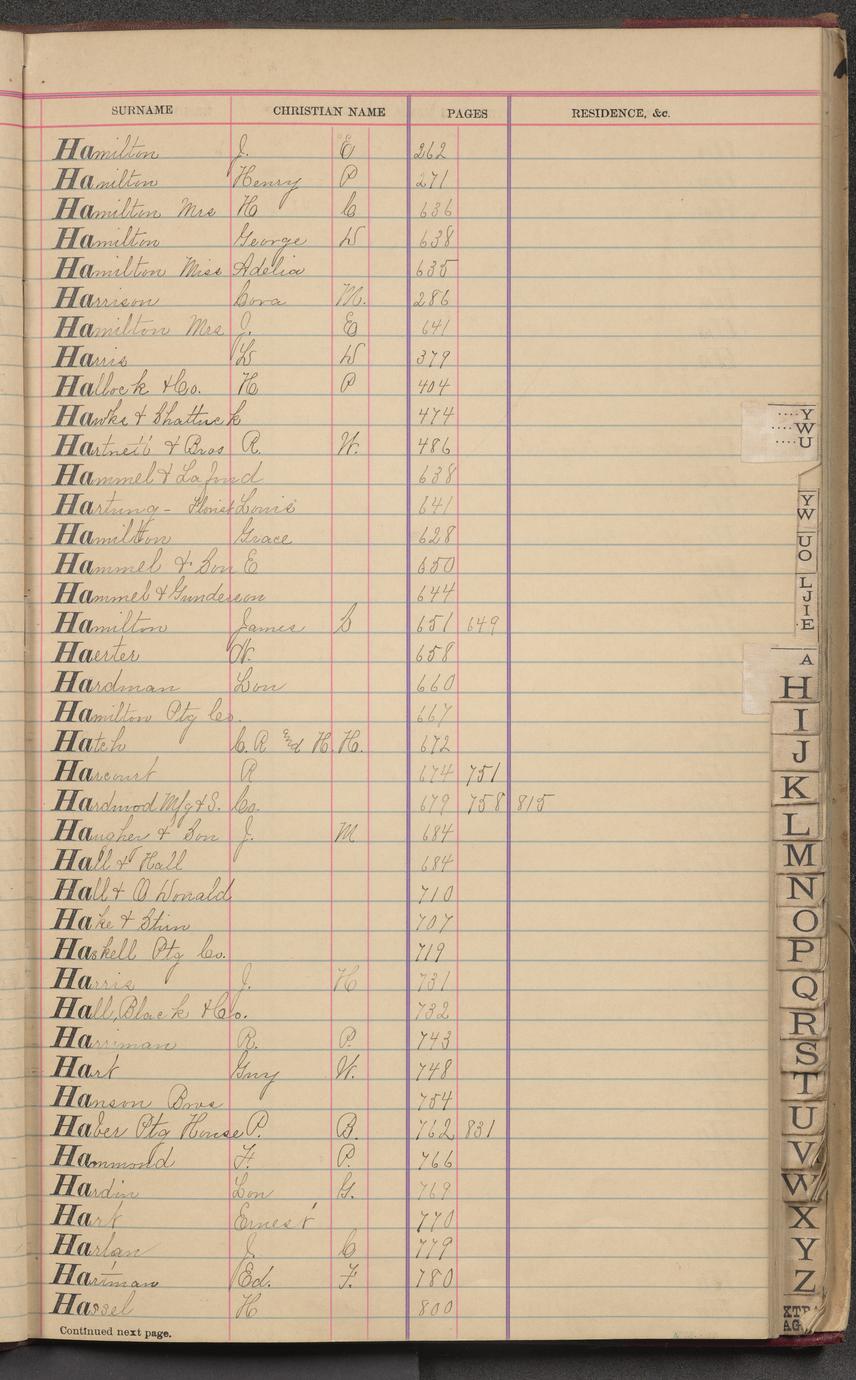 SURNAME CHRISTIAN NAME PAGES RESIDENCE, &c.
Hamilton J. E 262
Hamilton Henry P 271
Hamilton Mrs H C 636
Hamilton George W 638
Hamilton Miss Adelia 635
Harrison Cora M. 286
Hamilton Mrs J. E 641
Harris W 379
Hallock & Co. H P 404
Hawks & Shattuck 474
Hartnett & Bros R. W. 486
Hammel & Lafond 638
Hartung - Florist Louis 641
Hamilton Grace 628
Hammel & Son E 650
Hammel & Gunderson 644
Hamilton James S 651 649
Haerter W. 658
Hardman Lon 660
Hamilton Ptg Co. 667
Hatch C. R and H. H. 672
Harcourt R 674 751
Hardwood Mfg & S. Co. 679 758 815
Haugher & Son J. M 684
Hall & Hall 684
Hall & O Donald 710
Hake & Stim 707
Haskell Ptg Co. 719
Harris J. H 731
Hall, Black & Co. 732
Harriman R. P. 743
Hart Guy W. 748
Hanson Bros 754
Haber Ptg House P. B. 762 831
Hammond F. P. 766
Hardin Lon G. 769
Hart Ernest 770
Harlan J. C 779
Hartman Ed. F. 780
Hassel H 800
Continued next page.
Y
W
U
Y
W
U
O
L
J
I
E
A
H
I
J
K
L
M
N
O
P
Q
R
S
T
U
V
W
X
Y
Z